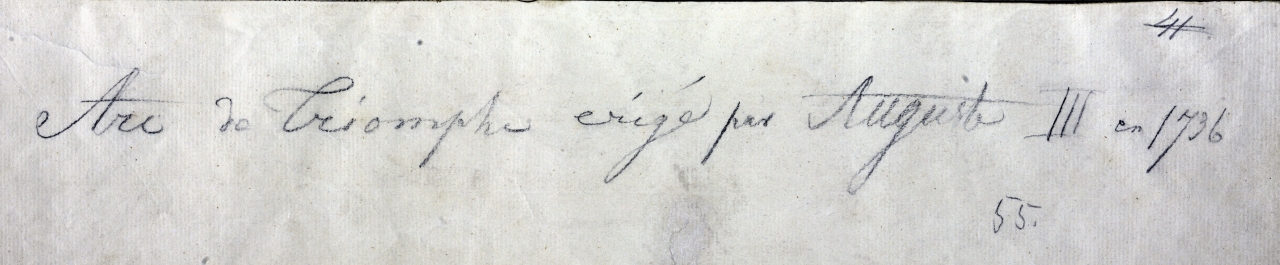 41
Arc de Triomphe erigé par Auguste III en 1736
55.